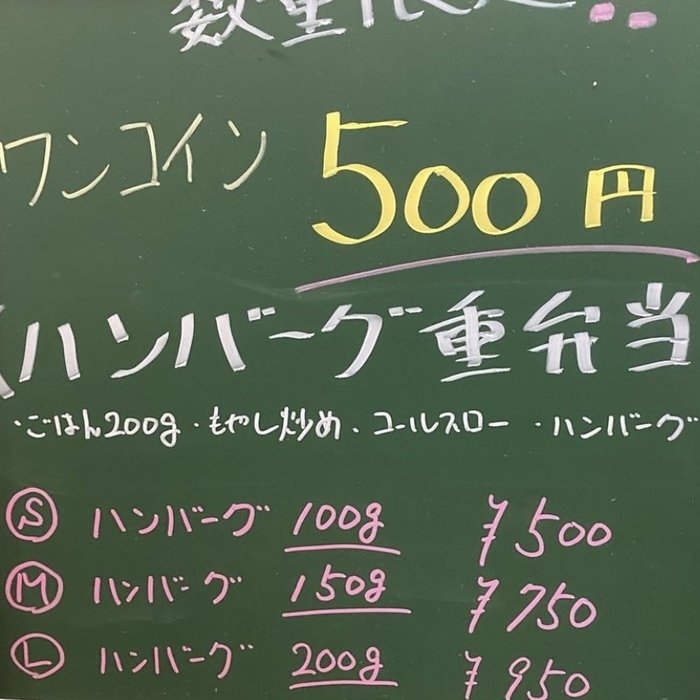 数量限定!!
ワンコイン 500円
ハンバーグ重弁当
・ごはん200g・もやし炒め・コールスロー・ハンバーグ
Ⓢ ハンバーグ 100g ¥500
Ⓜ ハンバーグ 150g ¥750
Ⓛ ハンバーグ 200g ¥950